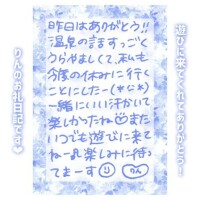 遊びに来てくれてありがとう!
昨日はありがとう!!
温泉の話すっごく
うらやましくて、私も
今度の休みに行く
ことにしたー(*≧≦*)
一緒にいい汗かいて
楽しかったね また
いつでも遊びに来て
ねー 楽しみに待っ
てまーす りん
りんのお礼日記です♥